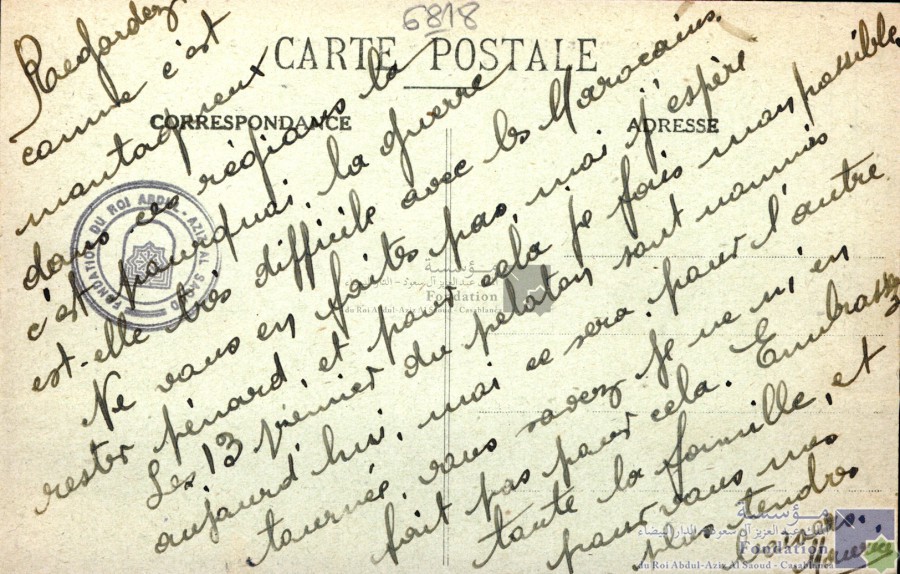 6818
CARTE POSTALE
CORRESPONDANCE
ADRESSE
Regardez
comme c'est
montagneux
dans ces régions là
c'est pourquoi, la guerre
est-elle très difficile avec les Marocains.
Ne vous en faites pas, moi j'espère
rester pénard, et pour cela je fais mon possible.
Les 13 premier du peloton sont nommés
aujourd'hui, moi ce sera pour l'autre
tournée, vous savez je ne m'en
fait pas pour cela. Embrassez
toute la famille, et
pour vous mes
plus tendres
baisers.
Maurice
FONDATION DU ROI ABDUL-AZIZ AL SAOUD
مؤسسة
الملك عبد العزيز آل سعود - الدار البيضاء
Fondation
du Roi Abdul-Aziz Al Saoud - Casablanca
مؤسسة
الملك عبد العزيز آل سعود - الدار البيضاء
Fondation
du Roi Abdul-Aziz Al Saoud - Casablanca